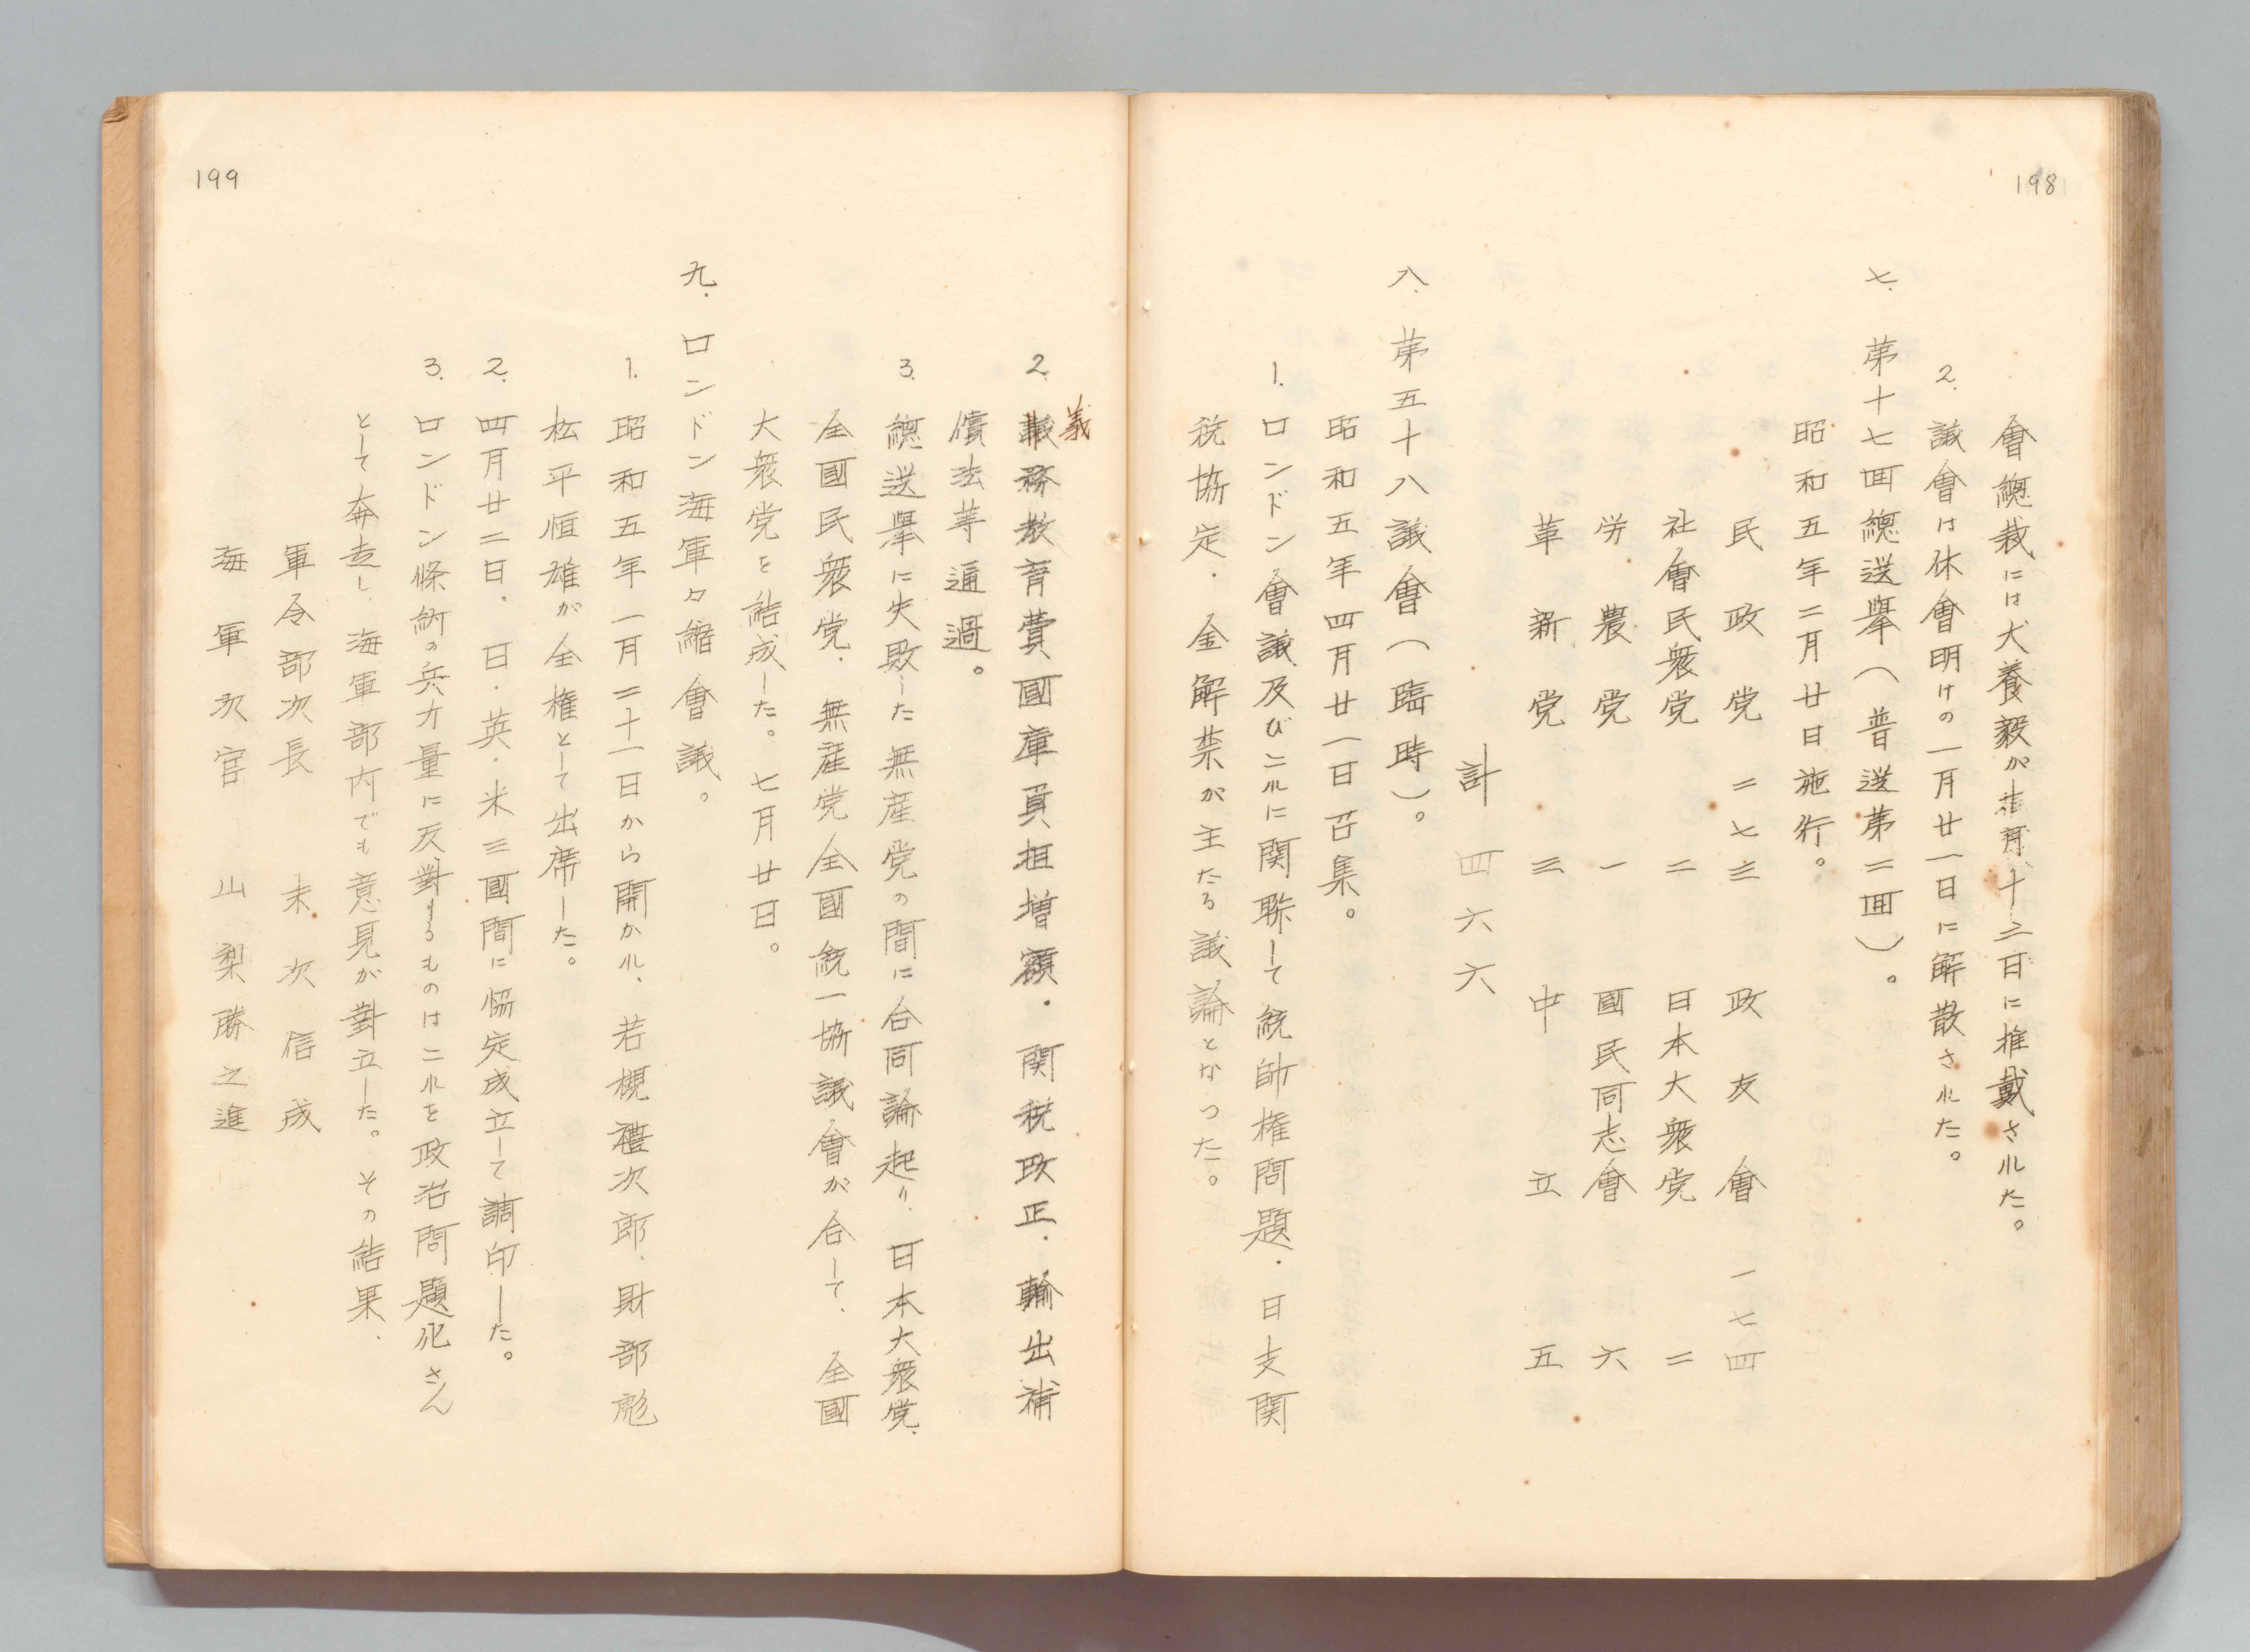 198
會總裁には犬養毅が十月十二日に推戴された。
2. 議會は休會明けの一月廿一日に解散された。
七. 第十七回總選擧(普選第二回)。
昭和五年二月廿日施行。
民政党 二七三 政友會 一七四
社會民衆党 二 日本大衆党 二
労農党 一 國民同志會 六
革新党 三 中立 五
計 四六六
八. 第五十八議會(臨時)。
昭和五年四月廿一日召集。
1. ロンドン會議及びこれに関聯して統帥権問題・日支関
税協定・金解禁が主たる議論となつた。
199
義
2. 議務教育費國庫負担増額・関税改正・輸出補
償法等通過。
3. 總選擧に失敗した無産党の間に合同論起り、日本大衆党、
全國民衆党、無産党全國統一協議會が合して、全國
大衆党を結成した。七月廿日。
九. ロンドン海軍々縮會議。
1. 昭和五年一月二十一日から開かれ、若槻禮次郎、財部彪
松平恒雄が全権として出席した。
2. 四月廿二日、日・英・米三國間に協定成立して調印した。
3. ロンドン條約の兵力量に反對するものはこれを政治問題化さん
として奔走し、海軍部内でも意見が對立した。その結果、
軍令部次長 末次信成
海軍次官 山梨勝之進